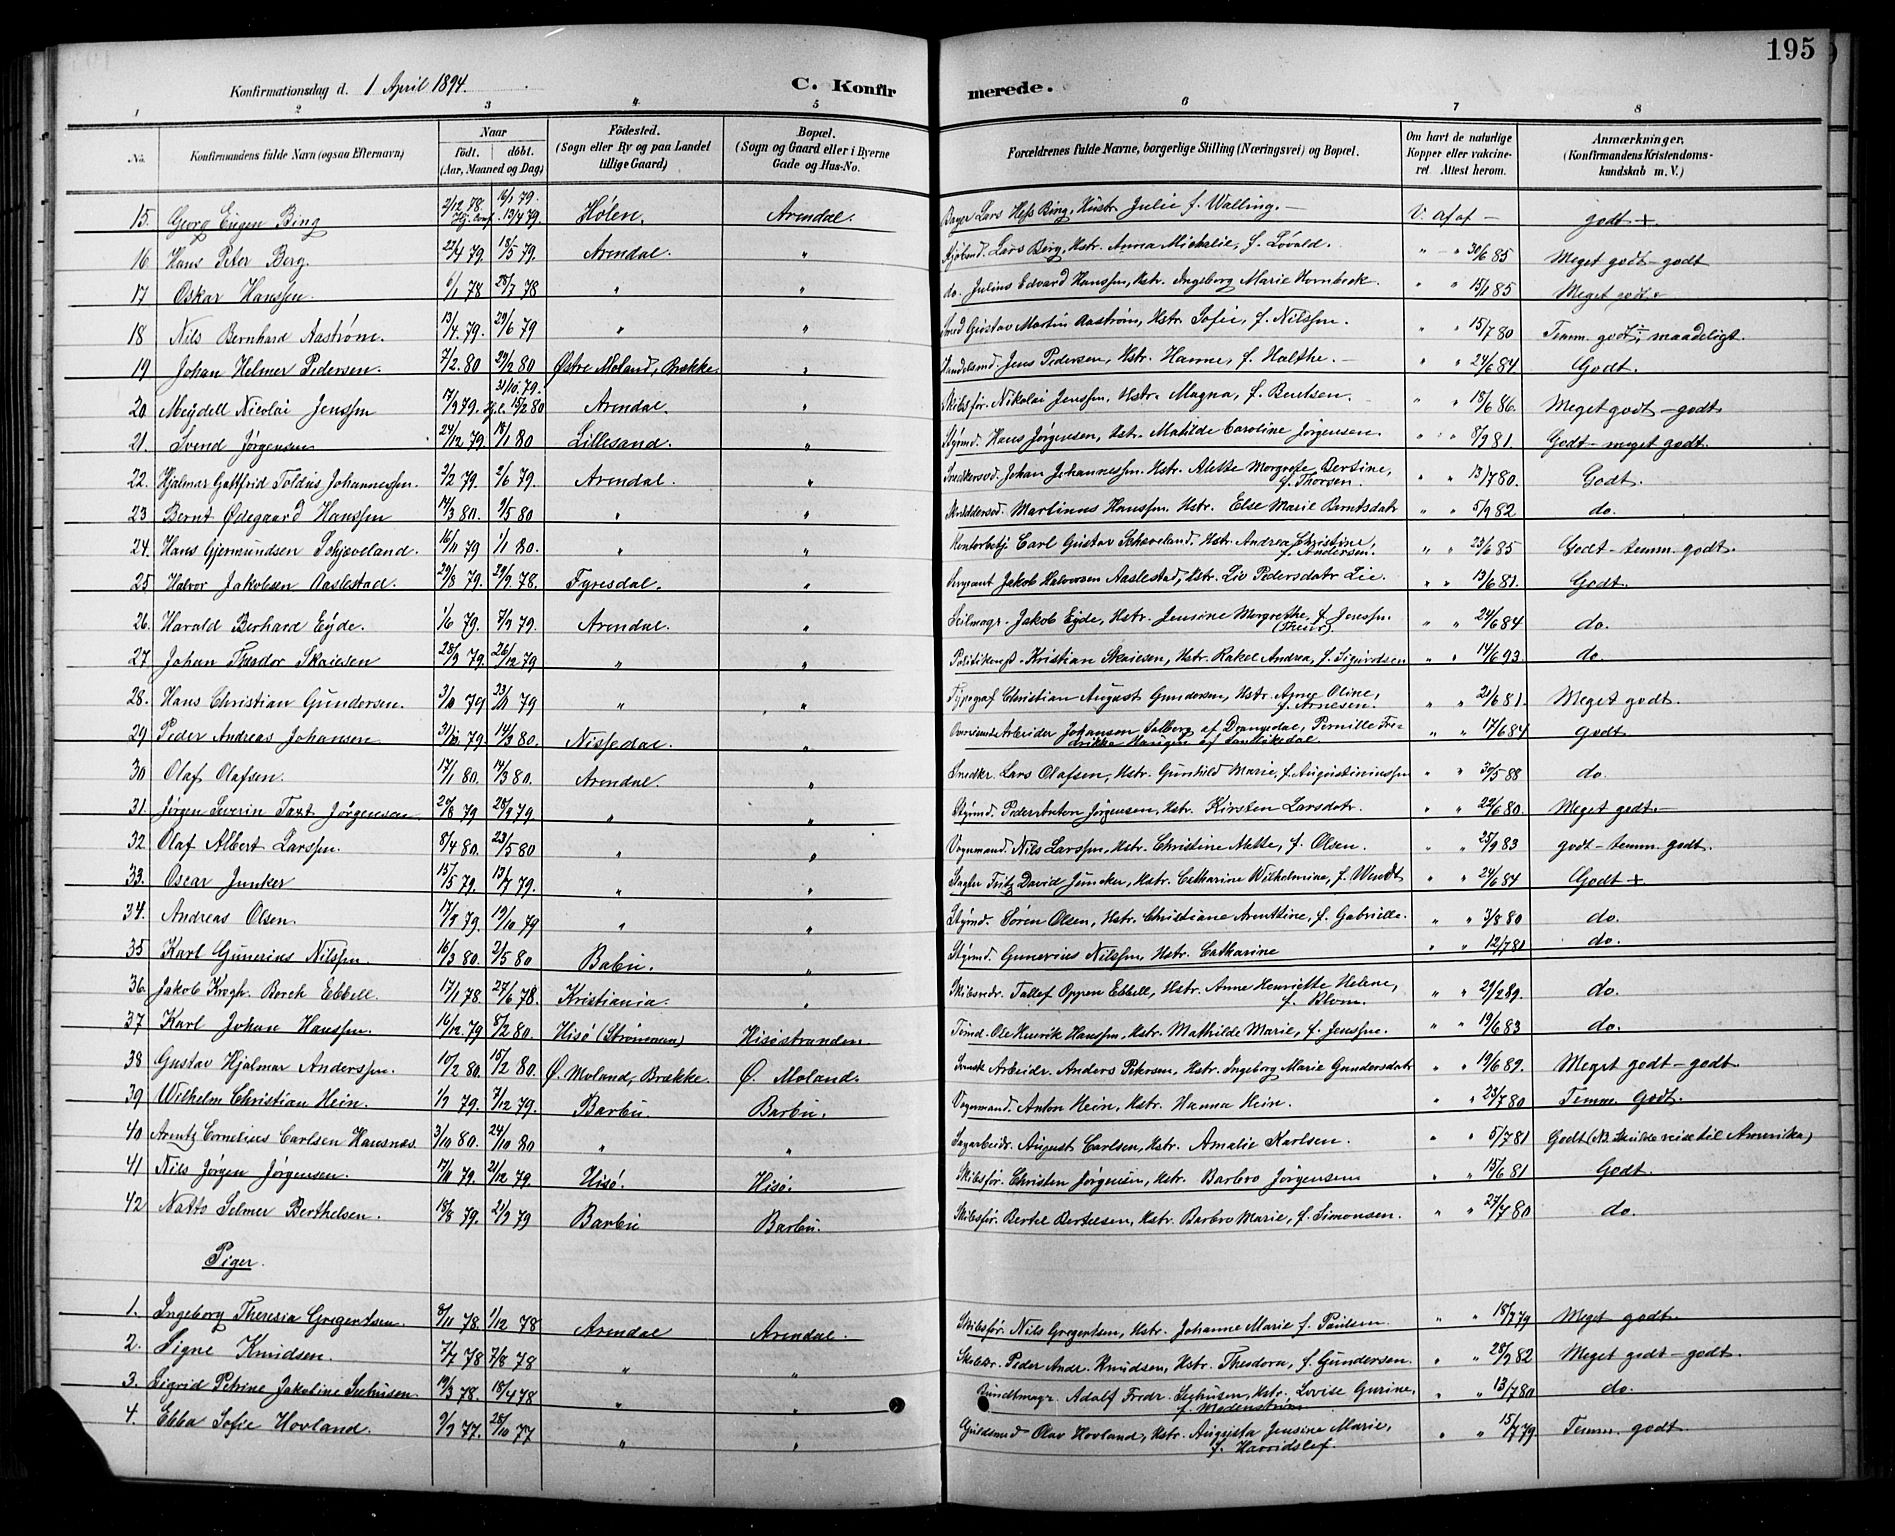 195
Konfirmationsdag d. 1 April 1894.
C. Konfirmerede.
1 2 3 4 5 6 7 8
No. Konfirmandens fulde Navn (ogsaa Efternavn) Naar födt. döbt. (Aar, Maaned og Dag) Födested. (Sogn eller By og paa Landet tillige Gaard) Bopæl. (Sogn og Gaard eller i Byerne Gade og Hus-No. Forældrenes fulde Navne, borgerlige Stilling (Næringsvei) og Bopæl. Om havt de naturlige Kopper eller vakcineret Attest herom. Anmærkninger. (Konfirmandens Kristendomskundskab m. V.)
15. Georg Eugen Bing 2/12 78. 6/1 79. Hj. Conf. 13/4 79. Holen. Arendal. Lars Hess Bing, Hustr. Julie f. Walling. V. af af godt +
16 Hans Peter Berg. 22/4 79 18/5 79. Arendal. " Kjöbmd. Lars Berg, Hstr. Anna Michalie, f. Lövald. " " 30/6 85 Meget godt - godt
17 Oskar Hanssen. 6/1 78 28/7 78 " " do. Julius Edvard Hanssen, Hstr. Ingeborg Marie Hornbeck. " " 15/1 85 Meget godt
18 Nils Bernhard Aaström. 13/4 79. 29/6 79 " " Smed Gustav Martin Aaström, Hstr. Sofie, f. Nilssen. " " 15/7 80 Temm. godt, maadeligt.
19 Johan Helmer Pedersen. 7/2 80 29/2 80 Østre Moland, Brække " Handelsmd. Jens Pedersen, Hstr. Hanne, f. Halthe. " " 24/6 84 Godt.
20. Meydell Nicolai Jenssen 17/9 79. 31/10 79. 15/2 80 Arendal. " Skibsför. Nikolai Jenssen, Hstr. Magna, f. Bentsen. " " 18/6 86. Meget godt - godt
21. Svend Jørgensen 24/12 79 18/1 80 Lillesand. " Stÿrmd. Hans Jørgensen, Hstr. Matilde Caroline Jørgensen. " " 8/9 81. Godt - meget godt.
22. Hjalmar Gottfrid Toldus Johannessen. 2/2 79. 2/6 79. Arendal. " Snedkersvd. Johan Johannessen. Hstr. Alette Margrete Bertine, f. Thorsen. " " 13/7 80. Godt.
23 Bernt Ødegaard Hanssen 14/3 80. 9/5 80 " " Skräddersvd. Martinus Hanssen. Hstr. Else Marie Berntsdatr " " 5/9 82 do.
24. Hans Gjermundsen Schjæveland. 16/11 79 1/1 80. " " Kontorbetj. Carl Gustav Schæveland. Hstr. Andrea Christine, f. Andersen. " " 23/6 85 Godt - temm. godt.
25 Halvor Jakobsen Aaslestad. 29/8 79. 29/9 78. Fyresdal. " Sergeant Jakob Halvorsen Aaslestad, Hstr. Liv Pedersdatr Lie. " " 13/6 81. Godt.
26. Harald Berhard Eyde. 1/6 79. 7/9 79. Arendal. " Seilmagr. Jakob Eyde, Hstr. Jensine Margrethe, f. Jenssen. " " 24/6 84 do.
27 Johan Theodor Skaiesen 28/9 79. 26/12 79 " " Politikonst. Kristian Skaiesen, Hstr. Rakel Andrea, f. Sigurdsen " " 14/6 93. do.
28. Hans Christian Gundersen. 3/10 79 23/11 79 " " Typograf Christian August Gundersen, Hstr. Anne Oline, f. Arnesen. " " 21/6 81. Meget godt.
29 Peder Andreas Johansen 31/10 79. 14/3 80. Nissedal. " Arbeider Johanson Solberg af Drangedal, Pernille Fredrikke Haugen af Sandökedal. " " 17/6 84 godt
30 Olaf Olafsen. 17/1 80. 14/3 80. Arendal. " Snedkr. Lars Olafsen, Hstr. Gunhild Marie, f. Augustiniussen " " 30/5 88 do.
31. Jørgen Severin Taxt Jørgensen 20/8 79 28/9 79. " " Stÿrmd. Peder Anton Jørgensen, Hstr. Kirsten Larsdatr. " " 22/6 80. Meget godt.
32 Olaf Albert Larssen. 8/4 80. 23/5 80 " " Vognmand. Nils Larssen, Hstr. Christine Alette, f. Olsen. " " 25/9 83 godt - temm. godt.
33. Oscar Junker 15/5 79. 13/7 79. " " Fritz David Juncker, Hstr. Catharine Wilhelmine, f. Wendt " " 24/6 84 Godt +
34. Andreas Olsen. 17/9 79. 19/10 79 " " Stÿrmd. Søren Olsen, Hstr. Christiane Arenttine, f. Gabrielle. " " 3/8 80 do.
35 Karl Gunerius Nilssen. 16/3 80. 2/5 80 Babu. " Stÿrmd. Gunerius Nilssen, Hstr. Catharine " " 12/7 81 do.
36. Jakob Krogh. Borch Ebbell. 17/1 78. 27/6 78. Kristiania. " Skibsredr. Tallef Oppen Ebbell, Hstr. Anne Henriette Helene, f. Blom. " " 29/2 89. do.
37 Karl Johan Hanssen. 16/12 79 8/2 80. Hisö (Strömmen) Hisöstranden Tömd. Ole Henrik Hanssen, Hstr. Mathilde Marie, f. Jenssen. " " 19/6 83 do.
38 Gustav Hjalmar Anderssen. 10/2 80. 15/2 80 Ø. Moland, Brække. Ø. Moland. Svensk Arbeidr. Anders Petersen, Hstr. Ingeborg Marie Gundersdatr " " 19/6 89. Meget godt - godt
39 Wilhelm Christian Hein. 1/9 79. 7/12 79. Barbu. Barbu. Vognmand. Anton Hein, Hstr. Hanna Hein. " " 23/7 80 Temm. Godt.
40 Arentz Cornelius Carlsen Hausnæs. 3/10 80. 24/10 80 " " Sagarbeidr. August Carlsen, Hstr. Amalie Karlsen. " " 5/7 81 Godt (NB. Skulde reise til Amerika)
41 Nils Jørgen Jørgensen. 17/11 79. 21/12 79. Hisö. Hisö. Skibsför. Christen Jørgensen, Hstr. Barbro Jørgensen " " 15/6 81 Godt.
42 Natto Selmer Berthelsen. 18/8 79. 21/9 79 Barbu Barbu. Skibsför. Bertel Bertelsen, Hstr. Barbro Marie, f. Simonsen. " " 27/7 80 do.
Piger.
1. Ingeborg Theresia Gregertsen. 8/11 78. 1/12 78 Arendal Arendal. Skibsför. Nils Gregertsen, Hstr. Johanne Marie f. Paulsen " " 18/7 79 Meget godt.
2. Signe Knudsen. 7/7 78 7/8 78 " " Peder Andr. Knudsen, Hstr. Theodora, f. Gundersen. " " 28/9 82 Meget godt - godt.
3. Sigrid Petrine Jakoline Seehusen 19/3 78. 18/4 78 " " Bundtmagr. Adolf Fredr. Seehusen, Hstr. Lovise Gurine, f. Modenström " " 13/7 80 do.
4. Ebba Sofie Hovland. 9/9 77. 28/10 77 " " Guldsmed Olav Hovland, Hstr. Augusta Jensine Marie, f. Harridslef. " " 15/7 79 Temm. godt